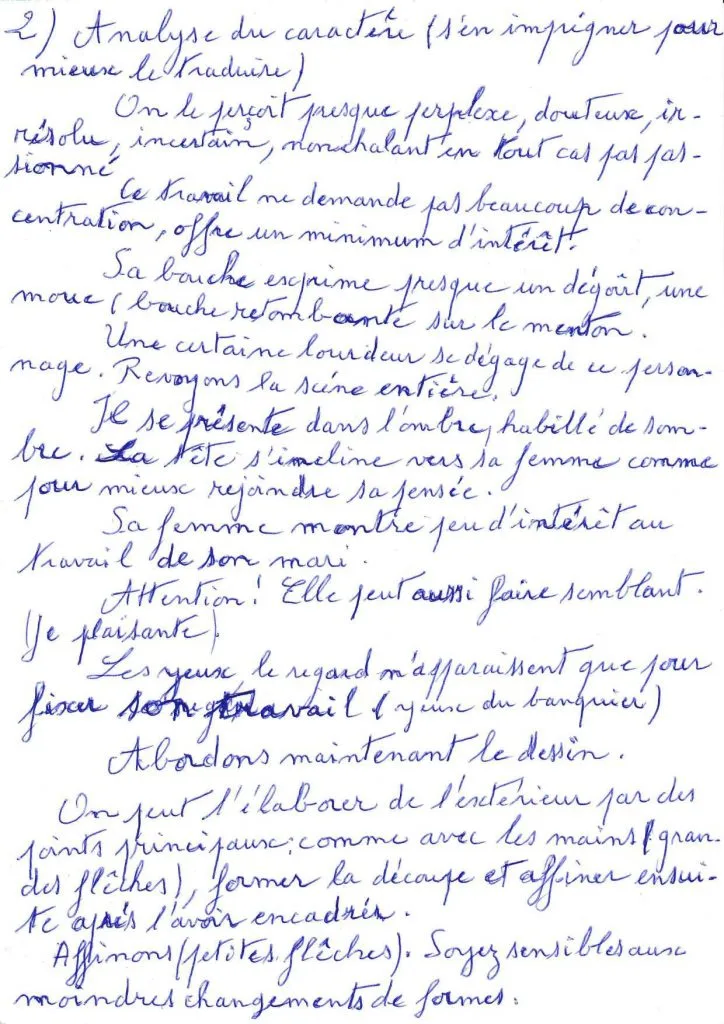 2) Analyse du caractère (s'en imprégner pour
mieux le traduire)
On le perçoit presque perplexe, douteux, ir-
résolu, incertain, nonchalant en tout cas pas pas-
sionné
Ce travail ne demande pas beaucoup de con-
centration, offre un minimum d'intérêt.
Sa bouche exprime presque un dégoût, une
moue (bouche retombante sur le menton.
Une certaine lourdeur se dégage de ce person-
nage. Revoyons la scène entière.
Il se présente dans l'ombre, habillé de som-
bre. La tête s'incline vers sa femme comme
pour mieux rejoindre sa pensée.
Sa femme montre peu d'intérêt au
travail de son mari.
Attention! Elle peut aussi faire semblant.
(Je plaisante).
Les yeux, le regard n'apparaissent que pour
fixer son travail (yeux du banquier)
Abordons maintenant le dessin.
On peut l'élaborer de l'extérieur par des
points principaux; comme avec les mains (gran-
des flêches), former la découpe et affiner ensui-
te après l'avoir encadrée.
Affinons (petites flêches). Soyez sensibles aux
moindres changements de formes.